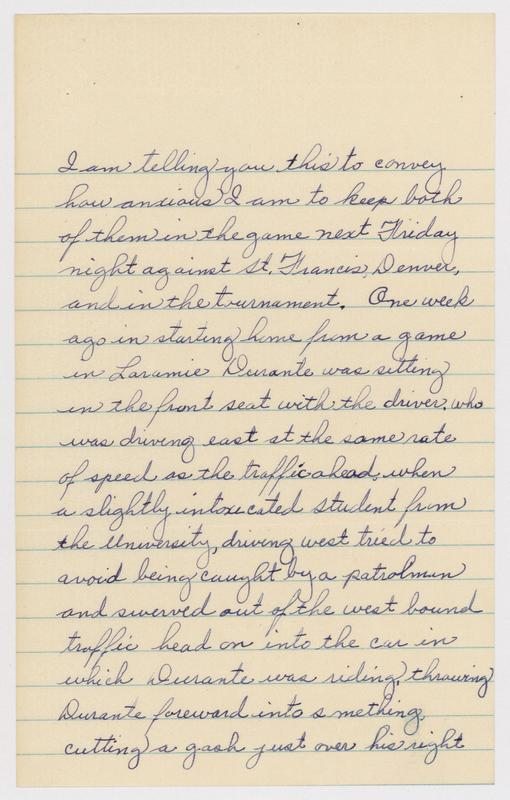 I am telling you this to convey
how anxious I am to keep both
of them in the game next Friday
night against St. Francis, Denver,
and in the tournament. One week
ago in starting home from a game
in Laramie Durante was sitting
in the front seat with the driver, who
was driving east at the same rate
of speed as the traffic ahead, when
a slightly intoxicated student from
the University, driving west tried to
avoid being caught by a patrolman
and swerved out of the west bound
traffic head on into the car in
which Durante was riding, throwing
Durante foreward into s mething,
cutting a gash just over his right